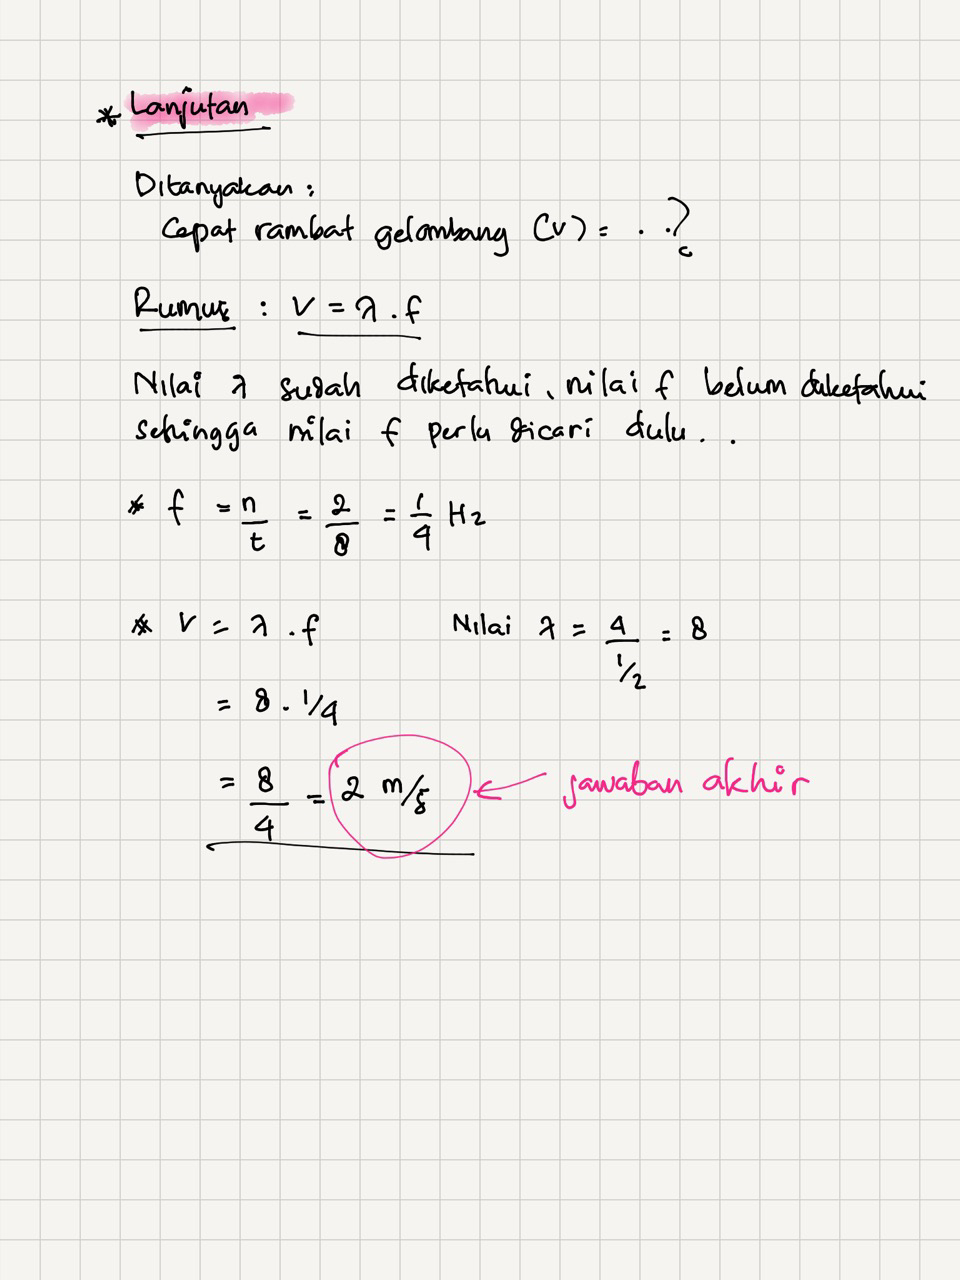 * Lanjutan
Ditanyakan :
Cepat rambat gelombang (v) = . . ?
Rumus : V = λ . f
Nilai λ sudah diketahui, nilai f belum diketahui
sehingga nilai f perlu dicari dulu . .
* f = n/t = 2/8 = 1/4 Hz
* V = λ . f Nilai λ = 4/1/2 = 8
= 8 . 1/4
= 8/4 = 2 m/s ← jawaban akhir